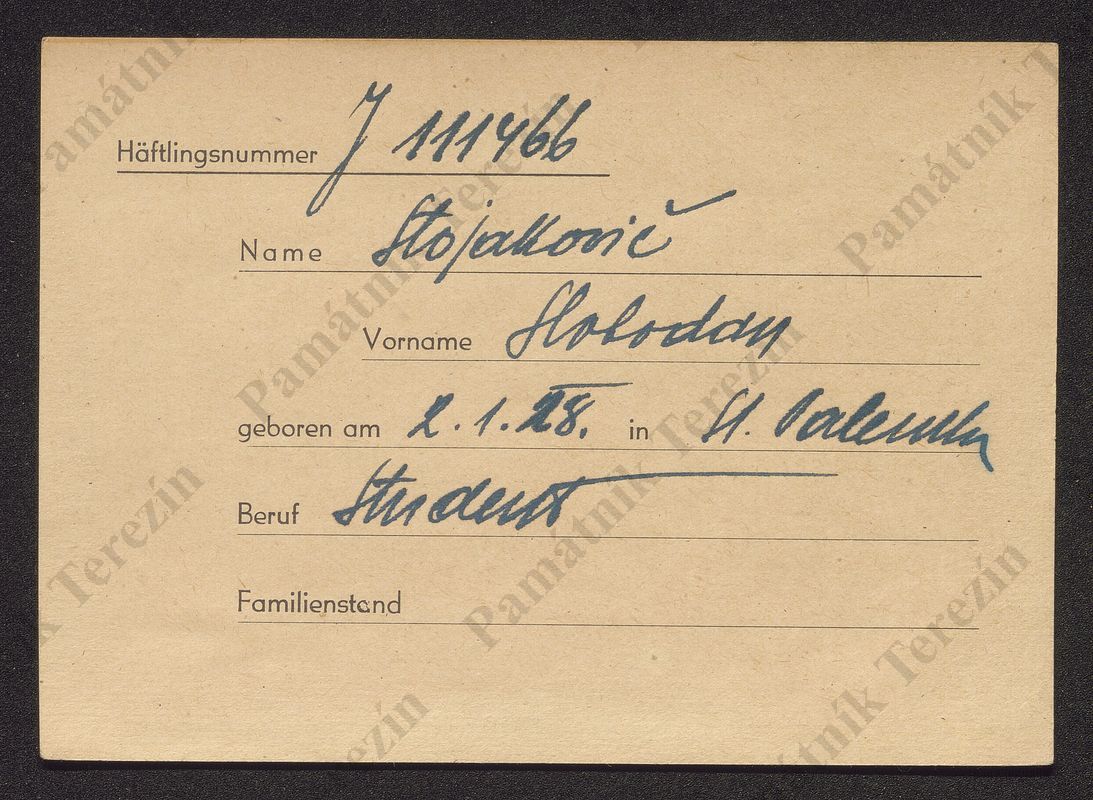 Häftlingsnummer J 111466
Name Stojakovič
Vorname Slobodan
geboren am 2.1.28. in St.
Beruf Student
Familienstand
Památník Terezín